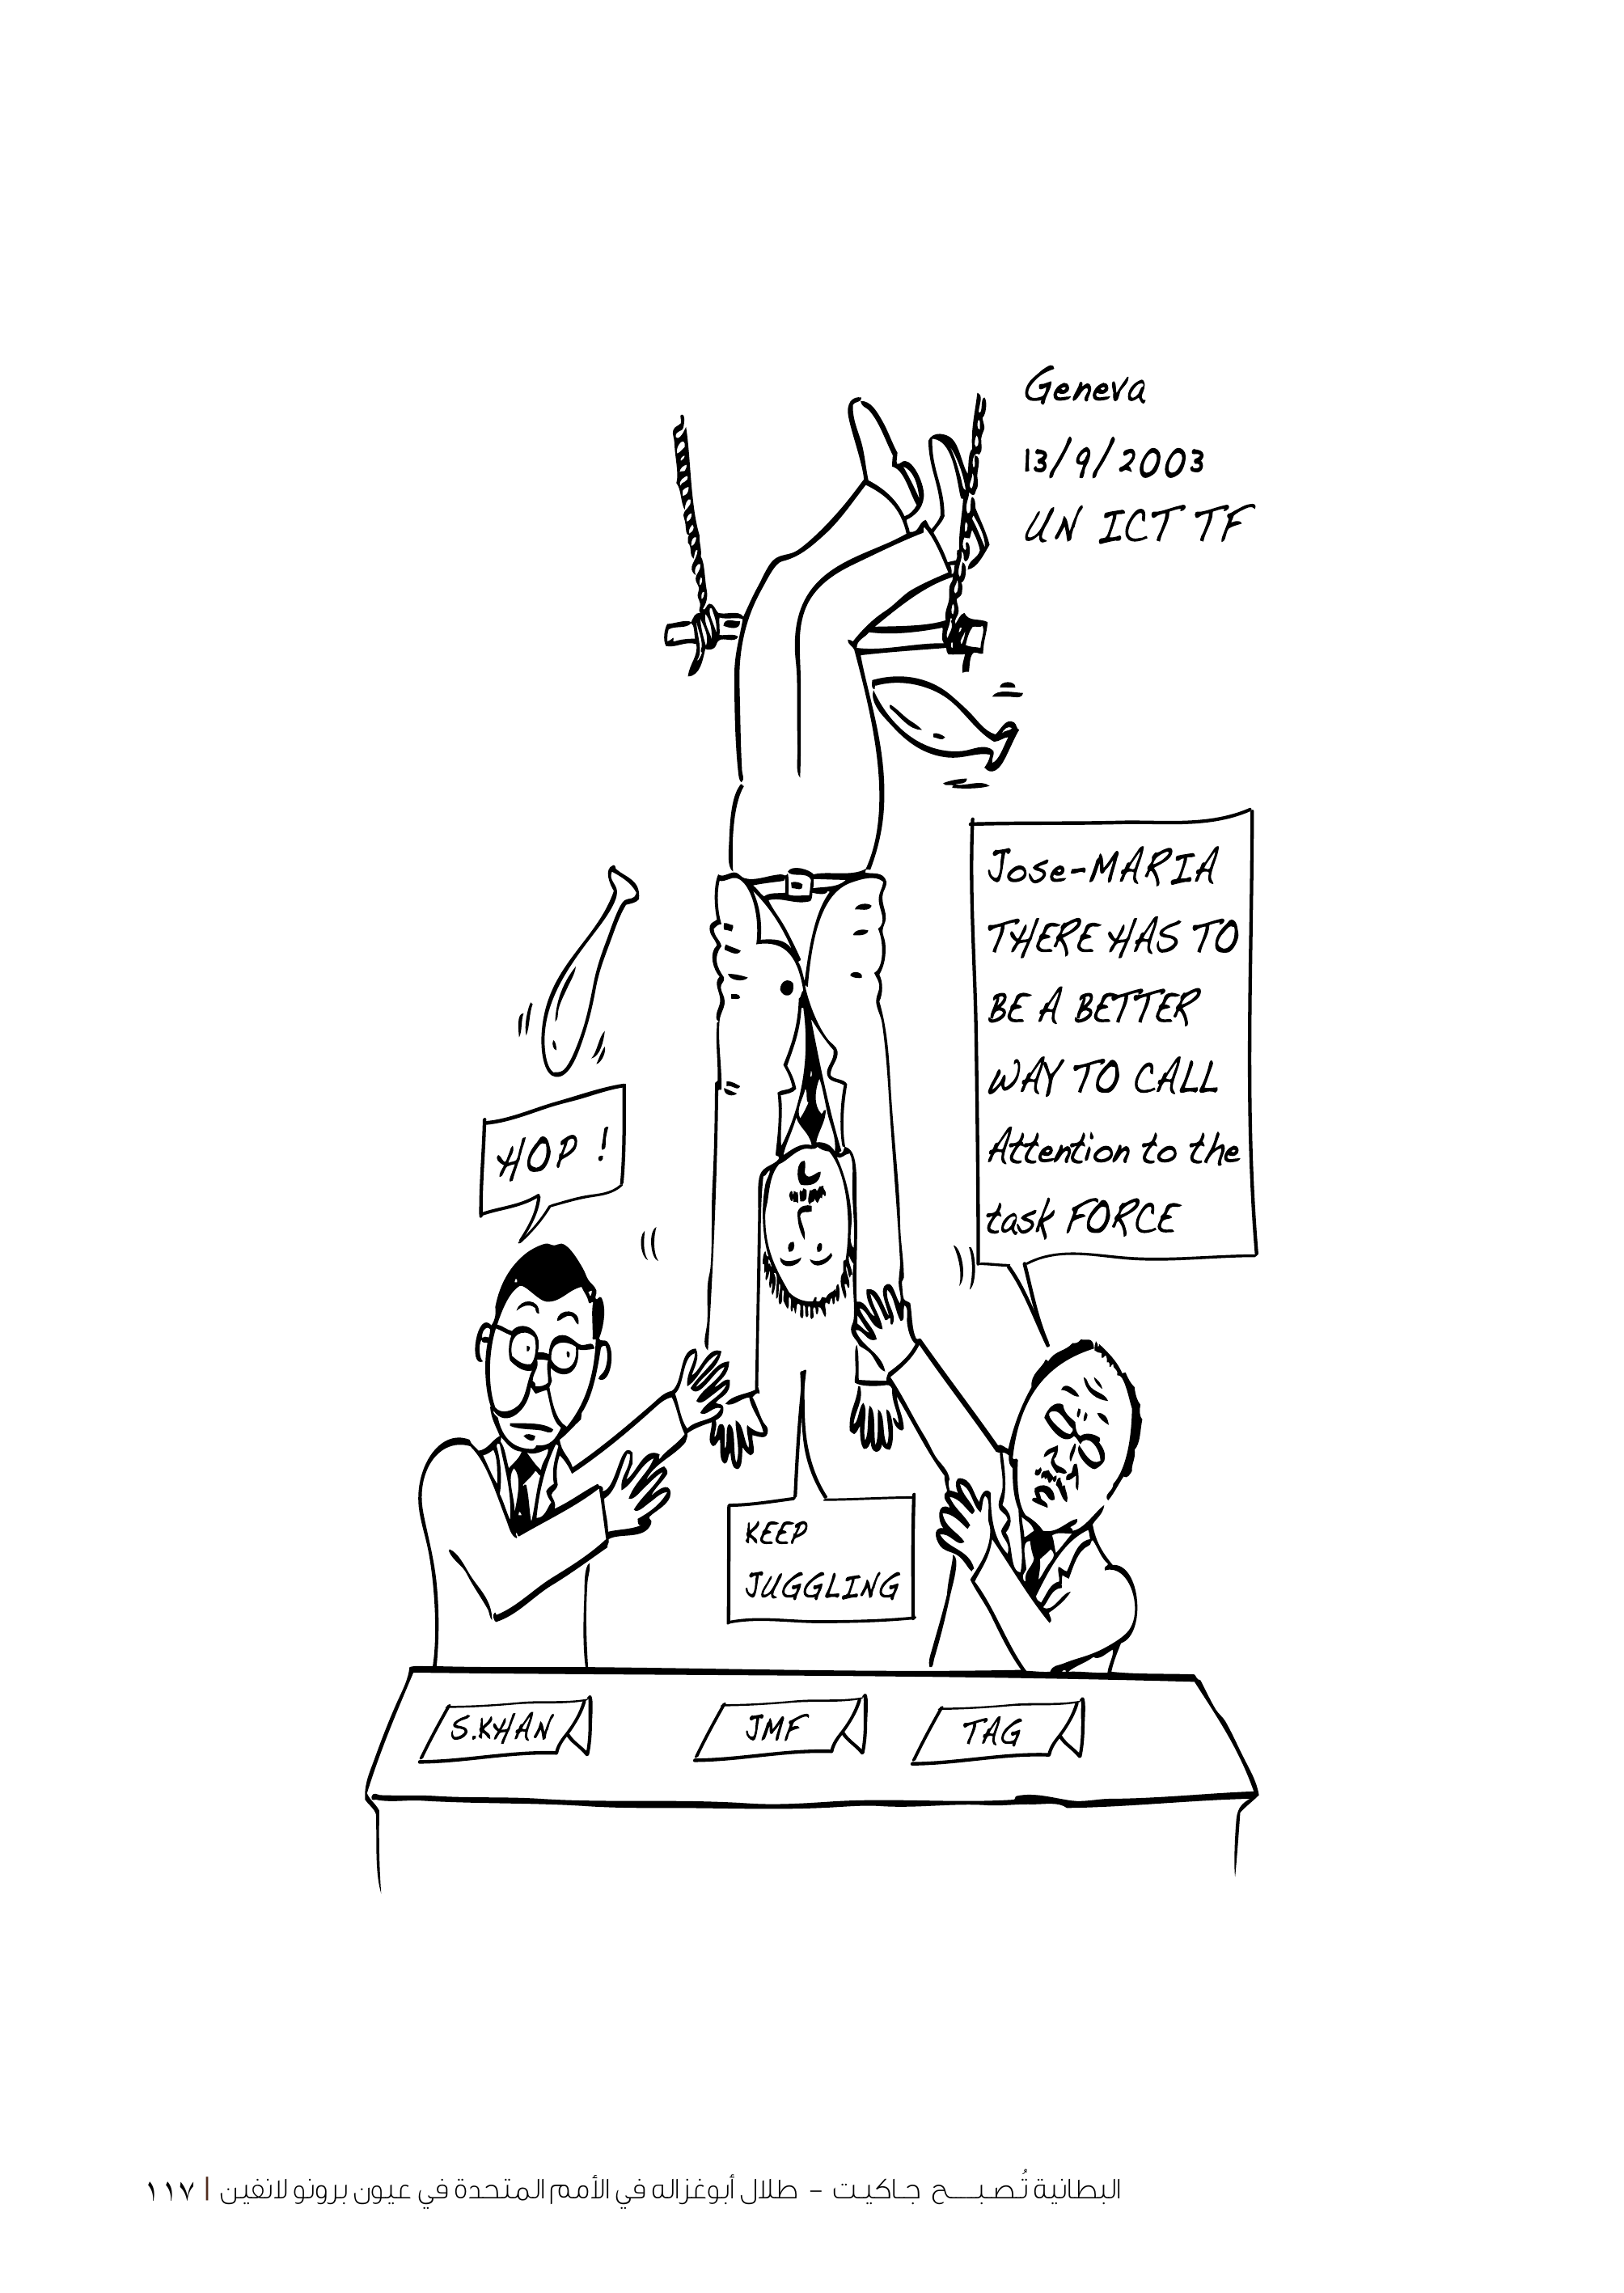 Geneva
13/9/2003
UN ICT TF
Jose-MARIA
THERE HAS TO
BE A BETTER
WAY TO CALL
Attention to the
task FORCE
HOP !
KEEP
JUGGLING
S.KHAN
JMF
TAG
البطانية تُصبح جاكيت - طلال أبوغزاله في الأمم المتحدة في عيون برونو لانفين | ١١٧